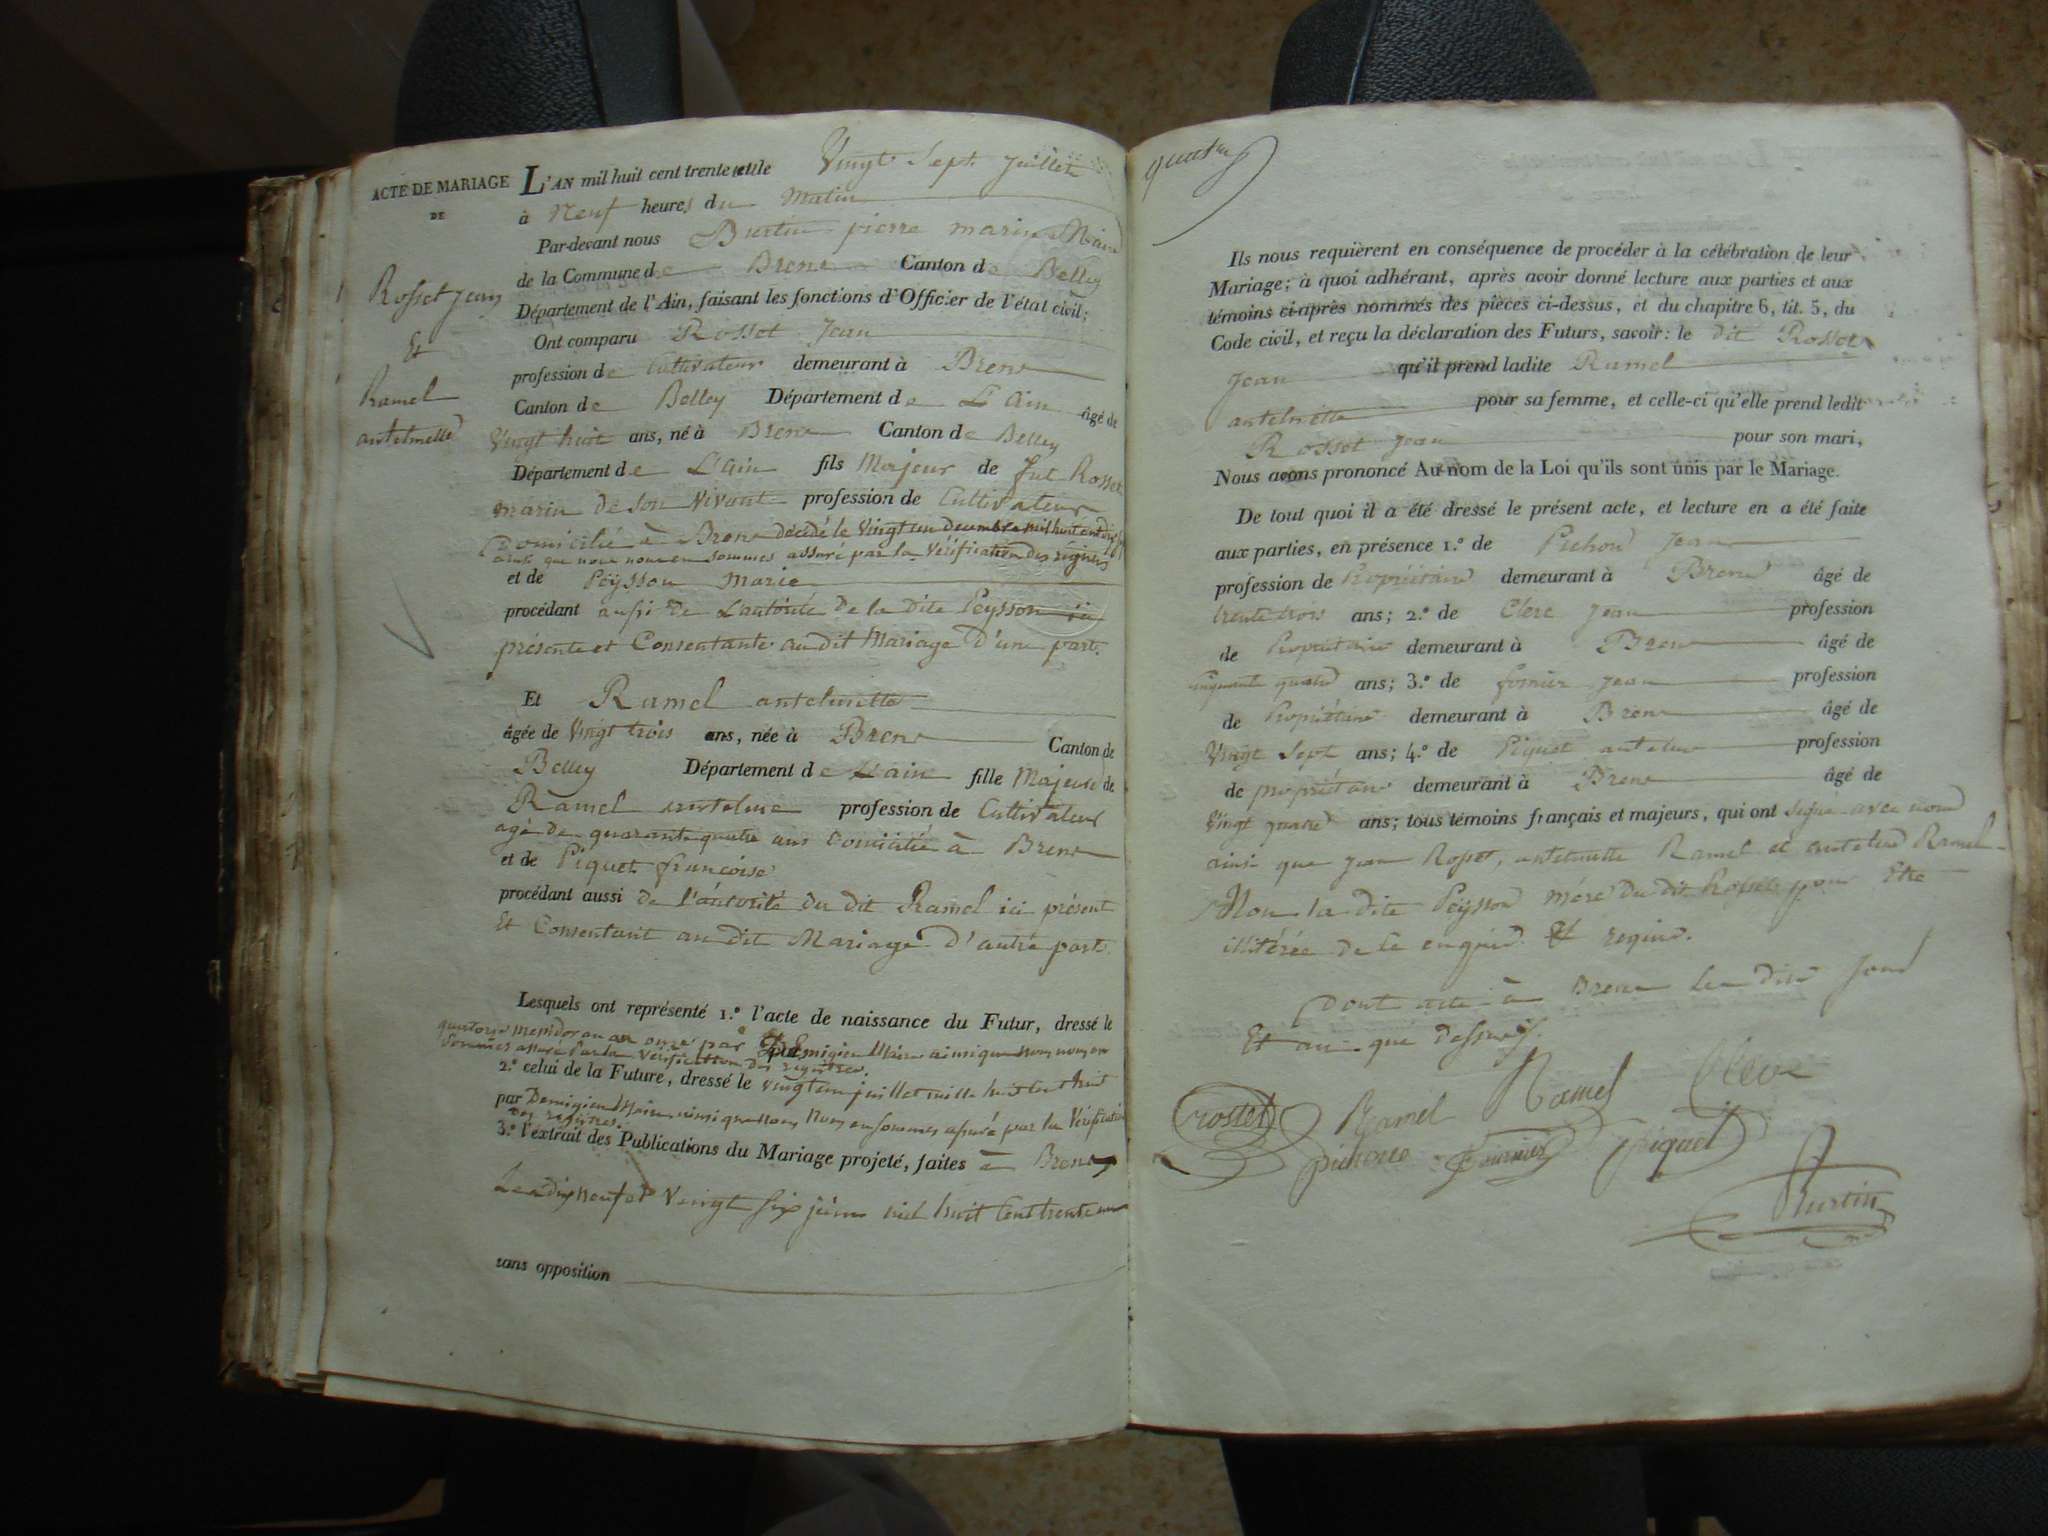 ACTE DE MARIAGE
DE
Rosset Jean
Et
Ramel
antelmette
L'AN mil huit cent trente et le Vingt Sept Juillet
à Neuf heures du Matin
Par-devant nous Burtin pierre marin Maire
de la Commune de Brens Canton de Belley
Département de l'Ain, faisant les fonctions d'Officier de l'état civil;
Ont comparu Rosset Jean
profession de Cultivateur demeurant à Brens
Canton de Belley Département de L'ain âgé de
Vingt huit ans, né à Brens Canton de Belley
Département de L'ain fils Majeur de fut Rosset
marin de son Vivant profession de Cultivateur
Domicilié à Brens décédé le Vingt un decembre mil huit cent
ainsi que nous nous en sommes assuré par la Vérification des régistres
et de Peysson Marie
procédant aussi de L'autorité de la dite Peysson ici
présente et Consentante audit Mariage D'une part.
Et Ramel antelmette
âgée de Vingt trois ans, née à Brens Canton de
Belley Département de L'ain fille Majeure de
Ramel antelme profession de Cultivateur
agé de quarante quatre ans Domicilié à Brens
et de Piquet françoise
procédant aussi de l'autorité du dit Ramel ici présent
Et Consentant au dit Mariage D'autre part.
Lesquels ont représenté 1.º l'acte de naissance du Futur, dressé le
quatorze messidor an onze par Demigieu Maire ainsi que nous nous en
sommes assuré Par la Vérification des registres.
2.º celui de la Future, dressé le vingt un juillet mille huit cent huit
par Demigieu Maire ainsi que nous Nous en sommes assuré par la Vérification
des registres.
3.º l'extrait des Publications du Mariage projeté, faites à Brens
Les dix neuf et Vingt Six juin mil huit Cent trente un
sans opposition
Ils nous requièrent en conséquence de procéder à la célébration de leur
Mariage; à quoi adhérant, après avoir donné lecture aux parties et aux
témoins ci-après nommés des pièces ci-dessus, et du chapitre 6, tit. 5, du
Code civil, et reçu la déclaration des Futurs, savoir: le dit Rosset
Jean qu'il prend ladite Ramel
antelmette pour sa femme, et celle-ci qu'elle prend ledit
Rosset Jean pour son mari,
Nous avons prononcé Au nom de la Loi qu'ils sont unis par le Mariage.
De tout quoi il a été dressé le présent acte, et lecture en a été faite
aux parties, en présence 1.º de Pichon Jean
profession de Propriétaire demeurant à Brens âgé de
trente trois ans; 2.º de Clerc Jean profession
de Propriétaire demeurant à Brens âgé de
Cinquante quatre ans; 3.º de fornier Jean profession
de Propriétaire demeurant à Brens âgé de
Vingt Sept ans; 4.º de Piquet antelme profession
de propriétaire demeurant à Brens âgé de
Vingt quatre ans; tous témoins français et majeurs, qui ont signé avec nous
ainsi que Jean Rosset, antelmette Ramel et antelme Ramel
Non la dite Peysson mère du dit Rosset pour être
illitérée de ce enquise et requise.
Dont acte à Brens Les dits Jour
Et an que dessus.
rosset Ramel Ramel Clerc
pichon fournier piquet
Burtin